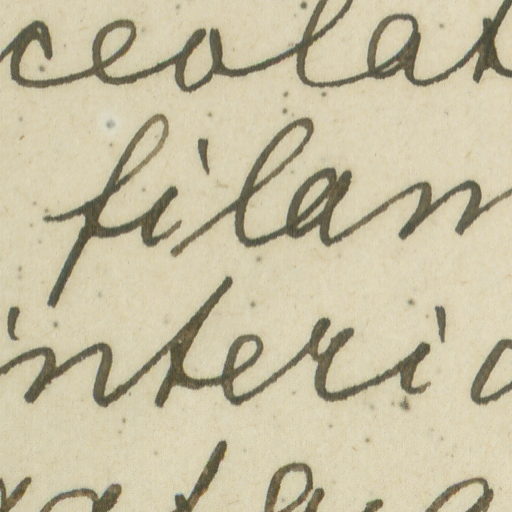 ceolat
filam
interio